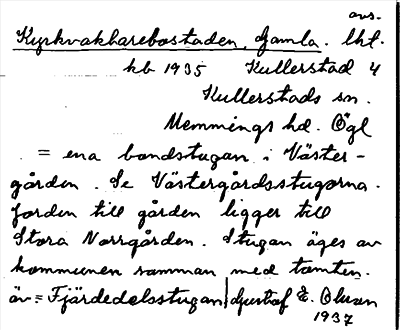 avs.
Kyrkvaktarebostaden, Gamla. lht.
kb 1935 Kullerstad 4
Kullerstads sn.
Memmings hd. Ögl
= ena bandstugan i Väster-
gården. Se Västergårdsstugorna.
Jorden till gården ligger till
Stora Norrgården. Stugan äges av
kommunen samman med tomten.
äv = Fjärdedelsstugan / Gustaf E. Olsson
1937